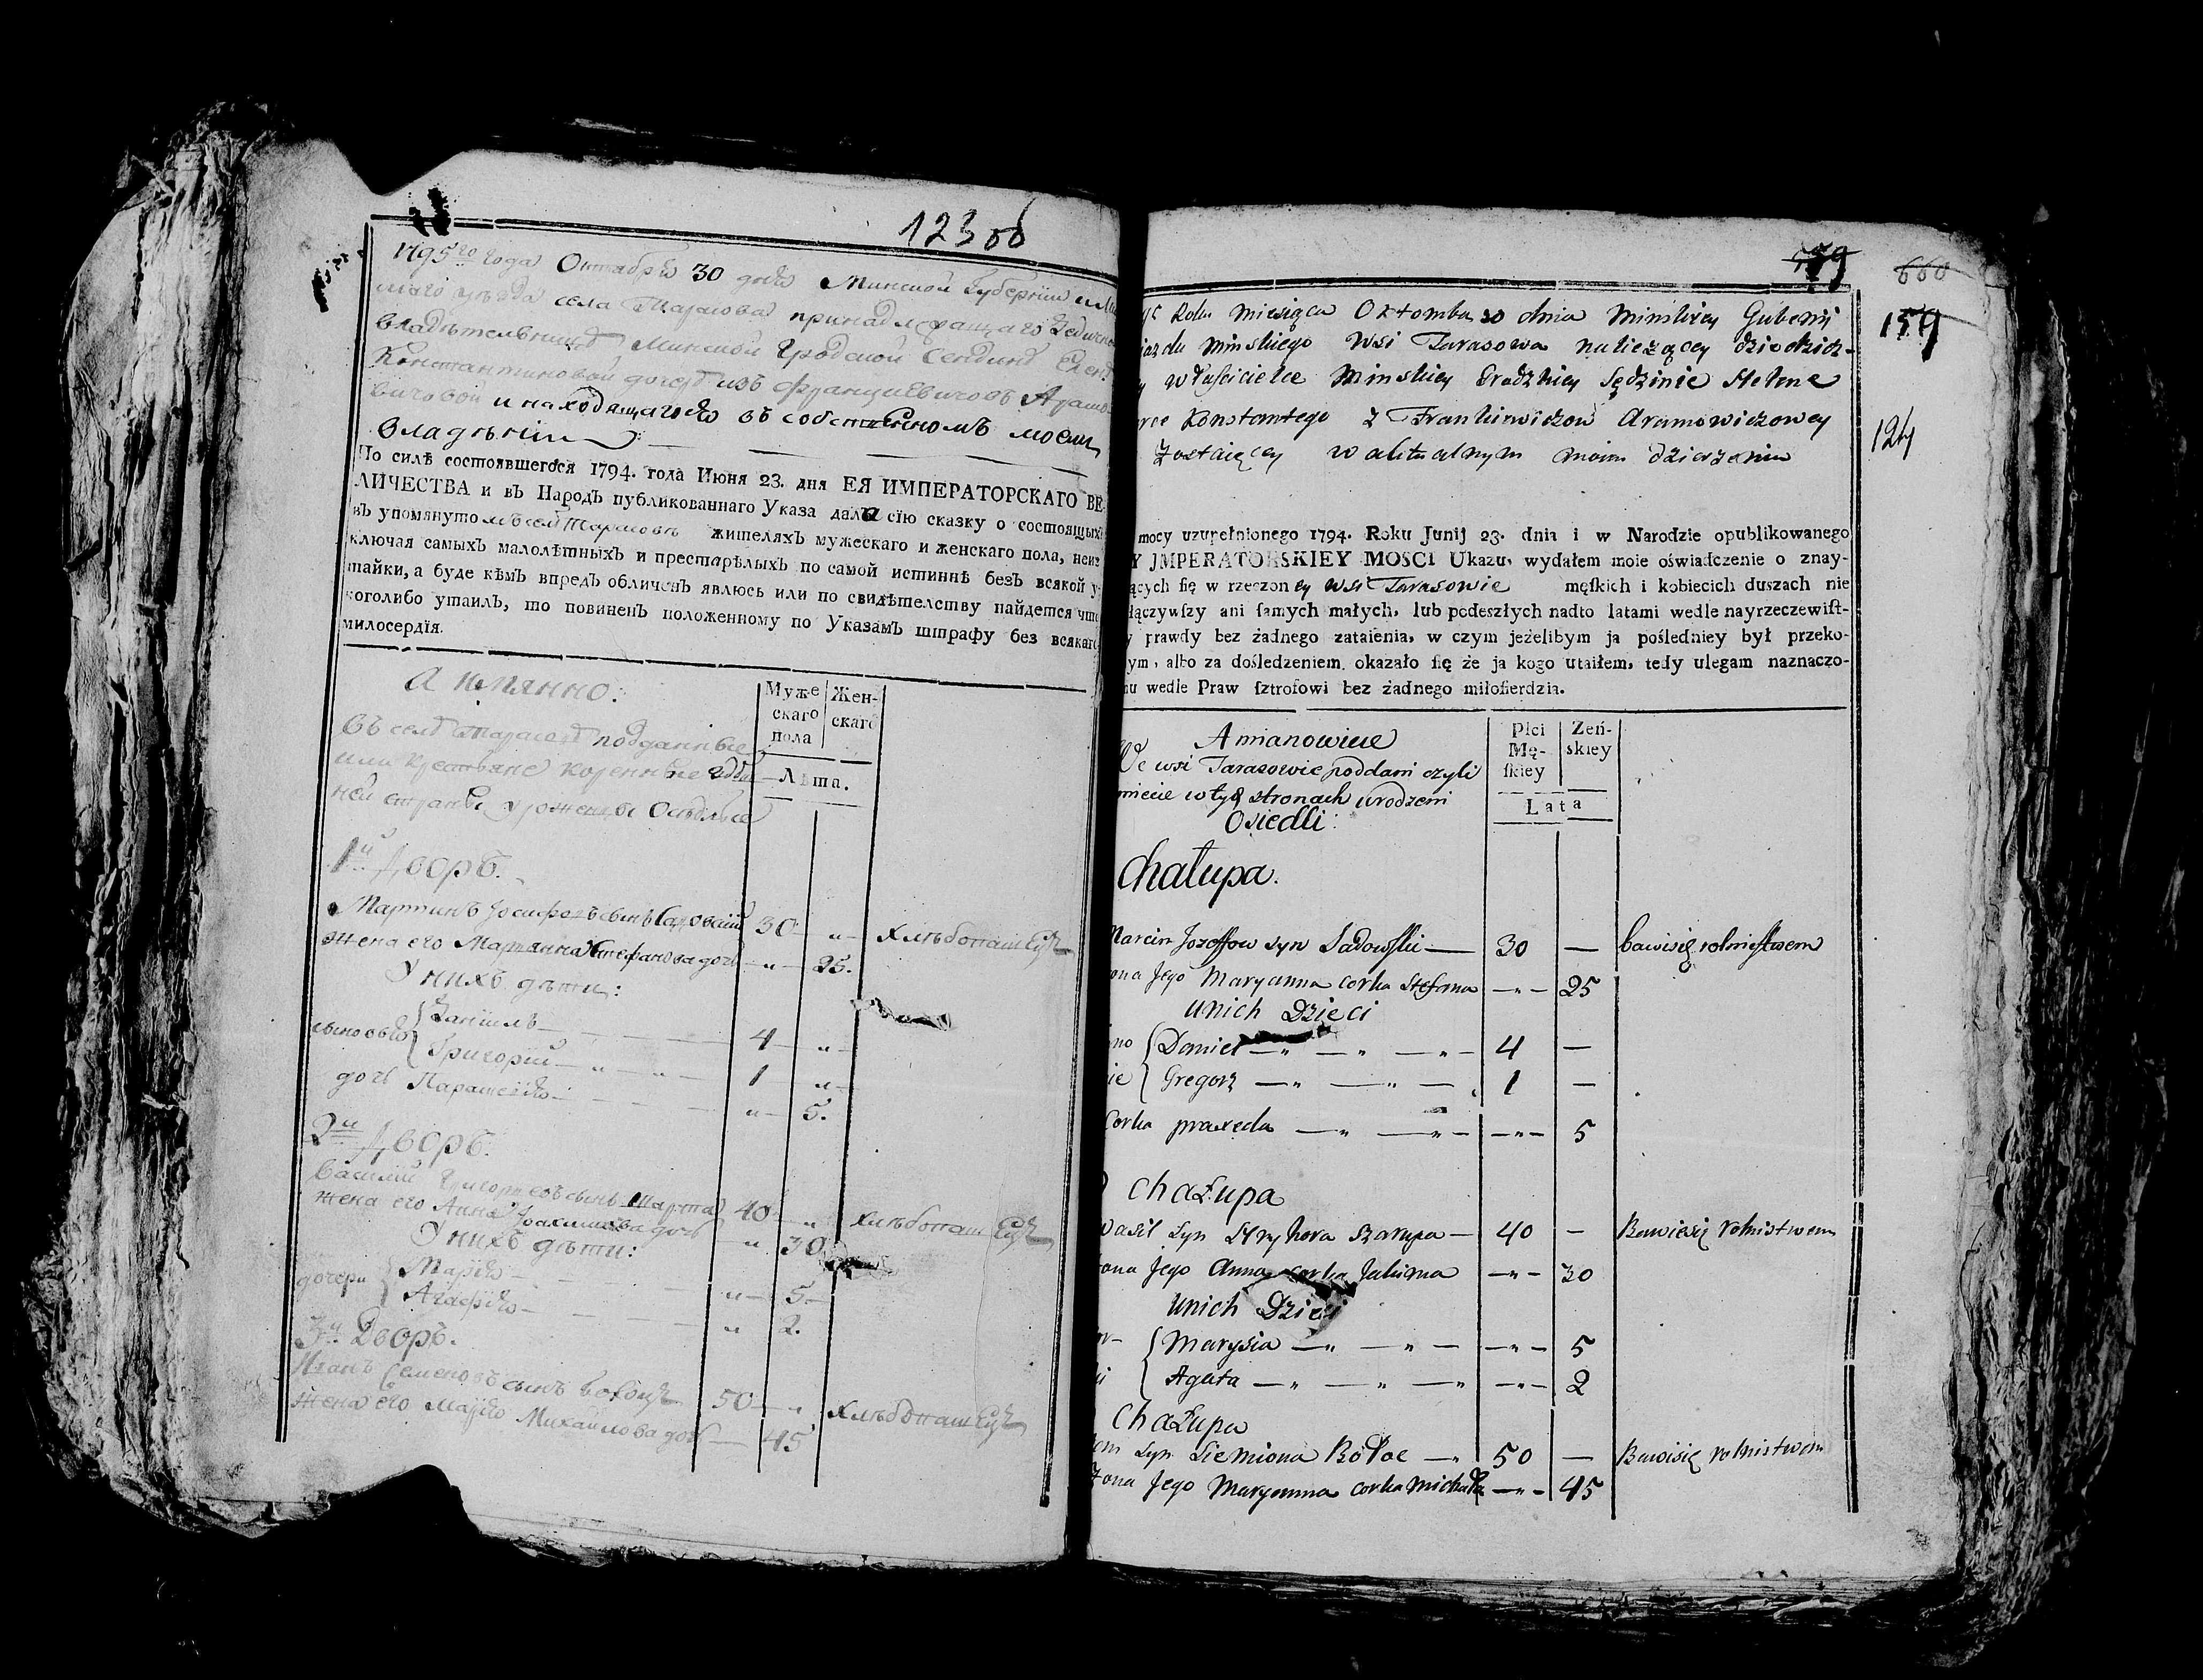 123 об
1795го года Октября 30 дня Минской Губернии
села Тарасова принадлежащаго
владѣтельницѣ Минской Гродской
Константиновой дочерѣ изъ Францкевичовъ
и находящагося въ собственномъ моемъ
владѣніи
По силѣ состоявшегося 1794. года Июня 23. дня ЕЯ ИМПЕРАТОРСКАГО ВЕ-
ЛИЧЕСТВА и въ Народъ публикованнаго Указа дала сїю сказку о состоящихъ
въ упомянутомъ селѣ Тарасовѣ жителяхъ мужескаго и женскаго пола, неис
ключая самыхъ малолѣтныхъ и престарѣлыхъ по самой истиннѣ безъ всякой у-
тайки, а буде кѣмъ впредъ обличенъ явлюсь или по свидѣтелству найдется что
коголибо утаилъ, то повиненъ положенному по Указамъ штрафу без всякаго
милосердїя.
А имянно:
Муже
скаго
пола
Жен-
скаго
Въ селѣ Тарасовѣ подданные
или крестьяне коренные
ней страны урожденцы Осѣдлые
Лѣта.
1й Дворъ.
Мартинъ Іосифовъ сынъ Садовскій 30 „ хлѣбопашецъ
жена его Марянна Стефанова дочь „ 25.
У нихъ дѣти:
сыновья { Даніилъ 4 „
Григорій 1 „
дочь Парасевія „ 5.
2й Дворъ.
Василій Григорьевъ сынъ Шарупа 40 „ хлѣбопашецъ
жена его Анна Іоакимова дочь „ 30
У нихъ дѣти:
дочери { Марія „ 5
Агафія „ 2.
3й Дворъ.
Иванъ Семеновъ сынъ Болоцъ 50 „ хлѣбопашецъ
жена его Марія Михайлова дочь 45
179
660
159
124
Roku miesiąca Oktombra 30 dnia Minskiey Gubernij
jazdu minskiego Wsi Tarasowa należącey dziedzicz-
y właścicielce Minskiey Grodzkiey Sędzinie Helenie
Konstantego z Frankiewiczow Aramowiczowey
Zostaiącey w aktualnym moim dzierżeniu
mocy uzupełnionego 1794. Roku Junij 23. dnia i w Narodzie opublikowanego
Y JMPERATORSKIEY MOSCI Ukazu, wydałem moie oświadczenie o znay-
ących ſię w rzeczoney wsi Tarasowie męſkich i kobiecich duszach nie
łączywſzy ani ſamych małych, lub podeszłych nadto latami wedle nayrzeczewiſt-
y prawdy bez żadnego zataienia, w czym jeżelibym ja pośledniey był przeko-
ym, albo za dośledzeniem okazało ſię że ja kogo utaiłem, tedy ulegam naznaczo-
mu wedle Praw ſztrofowi bez żadnego miłoſierdzia.
Amianowicie
Płci
Mę-
ſkiey
Żeń-
skiey
We wsi Tarasowie poddani czyli
miecie w tych stronach urodzeni
Osiedli:
Lata
Chałupa.
Marcin Jozeffow syn Sadowski — 30 — bawi się rolnictwem
ona Jego Maryanna corka Stefana — „ — 25
U nich Dzieci
no { Daniel — „ — „ — „ — 4 —
ie { Gregorz — „ — „ — 1 —
Corka praxeda — „ — „ — „ — 5
chałupa
Wasil Syn Hryhora Szarupa — 40 — Bawi się rolnictwem
ona Jego Anna corka Jakima — „ — 30
U nich Dzieci
{ Marysia — „ — „ — „ — 5
{ Agata — „ — „ — „ — „ — 2
chałupa
Syn Siemiona Bołoc — „ 50 — Bawi się rolnictwem
Zona Jego Maryanna corka michała — „ — 45